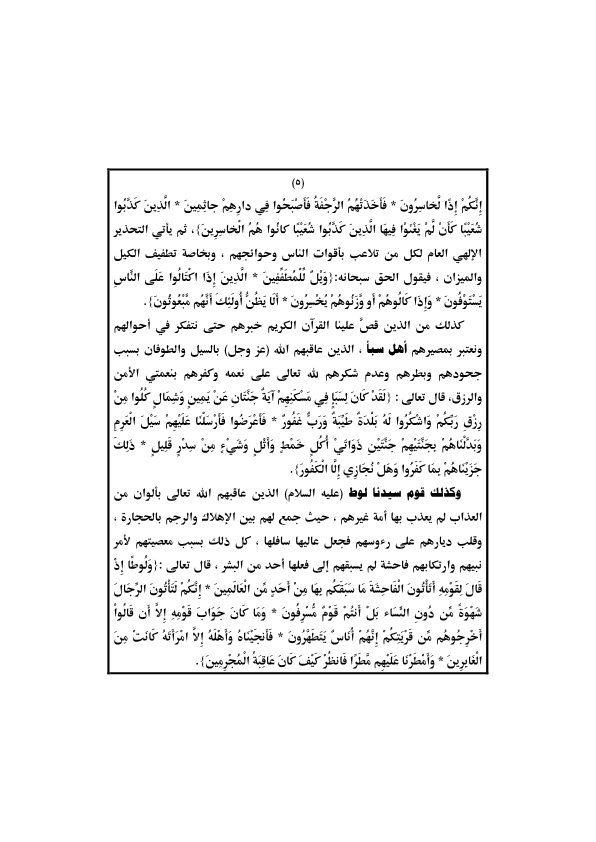 (٥)
إِنَّكُمْ إِذًا لَّخَاسِرُونَ * فَأَخَذَتْهُمُ الرَّجْفَةُ فَأَصْبَحُوا فِي دارِهِمْ جاثِمِينَ * الَّذِينَ كَذَّبُوا
شُعَيْبًا كَأَنْ لَّمْ يَغْنَوْا فِيهَا الَّذِينَ كَذَّبُوا شُعَيْبًا كانُوا هُمُ الْخَاسِرِينَ}، ثم يأتي التحذير
الإلهي العام لكل من تلاعب بأقوات الناس وحوائجهم ، وبخاصة تطفيف الكيل
والميزان ، فيقول الحق سبحانه:{وَيْلٌ لِّلْمُطَفِّفِينَ * الَّذِينَ إِذَا اكْتَالُوا عَلَى النَّاسِ
يَسْتَوْفُونَ * وَإِذَا كَالُوهُمْ أَو وَّزَنُوهُمْ يُخْسِرُونَ * أَلَا يَظُنُّ أُولَئِكَ أَنَّهُم مَّبْعُوثُونَ}.
كذلك من الذين قصَّ علينا القرآن الكريم خبرهم حتى نتفكر في أحوالهم
ونعتبر بمصيرهم أهل سبأ ، الذين عاقبهم الله (عز وجل) بالسيل والطوفان بسبب
جحودهم وبطرهم وعدم شكرهم لله تعالى على نعمه وكفرهم بنعمتي الأمن
والرزق، قال تعالى : {لَقَدْ كَانَ لِسَبَإٍ فِي مَسْكَنِهِمْ آيَةٌ جَنَّتَانِ عَنْ يَمِينٍ وَشِمَالٍ كُلُوا مِنْ
رِزْقِ رَبِّكُمْ وَاشْكُرُوا لَهُ بَلْدَةٌ طَيِّبَةٌ وَرَبٌّ غَفُورٌ * فَأَعْرَضُوا فَأَرْسَلْنَا عَلَيْهِمْ سَيْلَ الْعَرِمِ
وَبَدَّلْنَاهُمْ بِجَنَّتَيْهِمْ جَنَّتَيْنِ ذَوَاتَيْ أُكُلٍ خَمْطٍ وَأَثْلٍ وَشَيْءٍ مِنْ سِدْرٍ قَلِيلٍ * ذَلِكَ
جَزَيْنَاهُمْ بِمَا كَفَرُوا وَهَلْ نُجَازِي إِلَّا الْكَفُورَ}.
وكذلك قوم سيدنا لوط (عليه السلام) الذين عاقبهم الله تعالى بألوان من
العذاب لم يعذب بها أمة غيرهم ، حيث جمع لهم بين الإهلاك والرجم بالحجارة ،
وقلب ديارهم على رءوسهم فجعل عاليها سافلها ، كل ذلك بسبب معصيتهم لأمر
نبيهم وارتكابهم فاحشة لم يسبقهم إلى فعلها أحد من البشر ، قال تعالى :{وَلُوطًا إِذْ
قَالَ لِقَوْمِهِ أَتَأْتُونَ الْفَاحِشَةَ مَا سَبَقَكُم بِهَا مِنْ أَحَدٍ مِّن الْعَالَمِينَ * إِنَّكُمْ لَتَأْتُونَ الرِّجَالَ
شَهْوَةً مِّن دُونِ النِّسَاء بَلْ أَنتُمْ قَوْمٌ مُّسْرِفُونَ * وَمَا كَانَ جَوَابَ قَوْمِهِ إِلاَّ أَن قَالُواْ
أَخْرِجُوهُم مِّن قَرْيَتِكُمْ إِنَّهُمْ أُنَاسٌ يَتَطَهَّرُونَ * فَأَنجَيْنَاهُ وَأَهْلَهُ إِلاَّ امْرَأَتَهُ كَانَتْ مِنَ
الْغَابِرِينَ * وَأَمْطَرْنَا عَلَيْهِم مَّطَرًا فَانظُرْ كَيْفَ كَانَ عَاقِبَةُ الْمُجْرِمِينَ}.